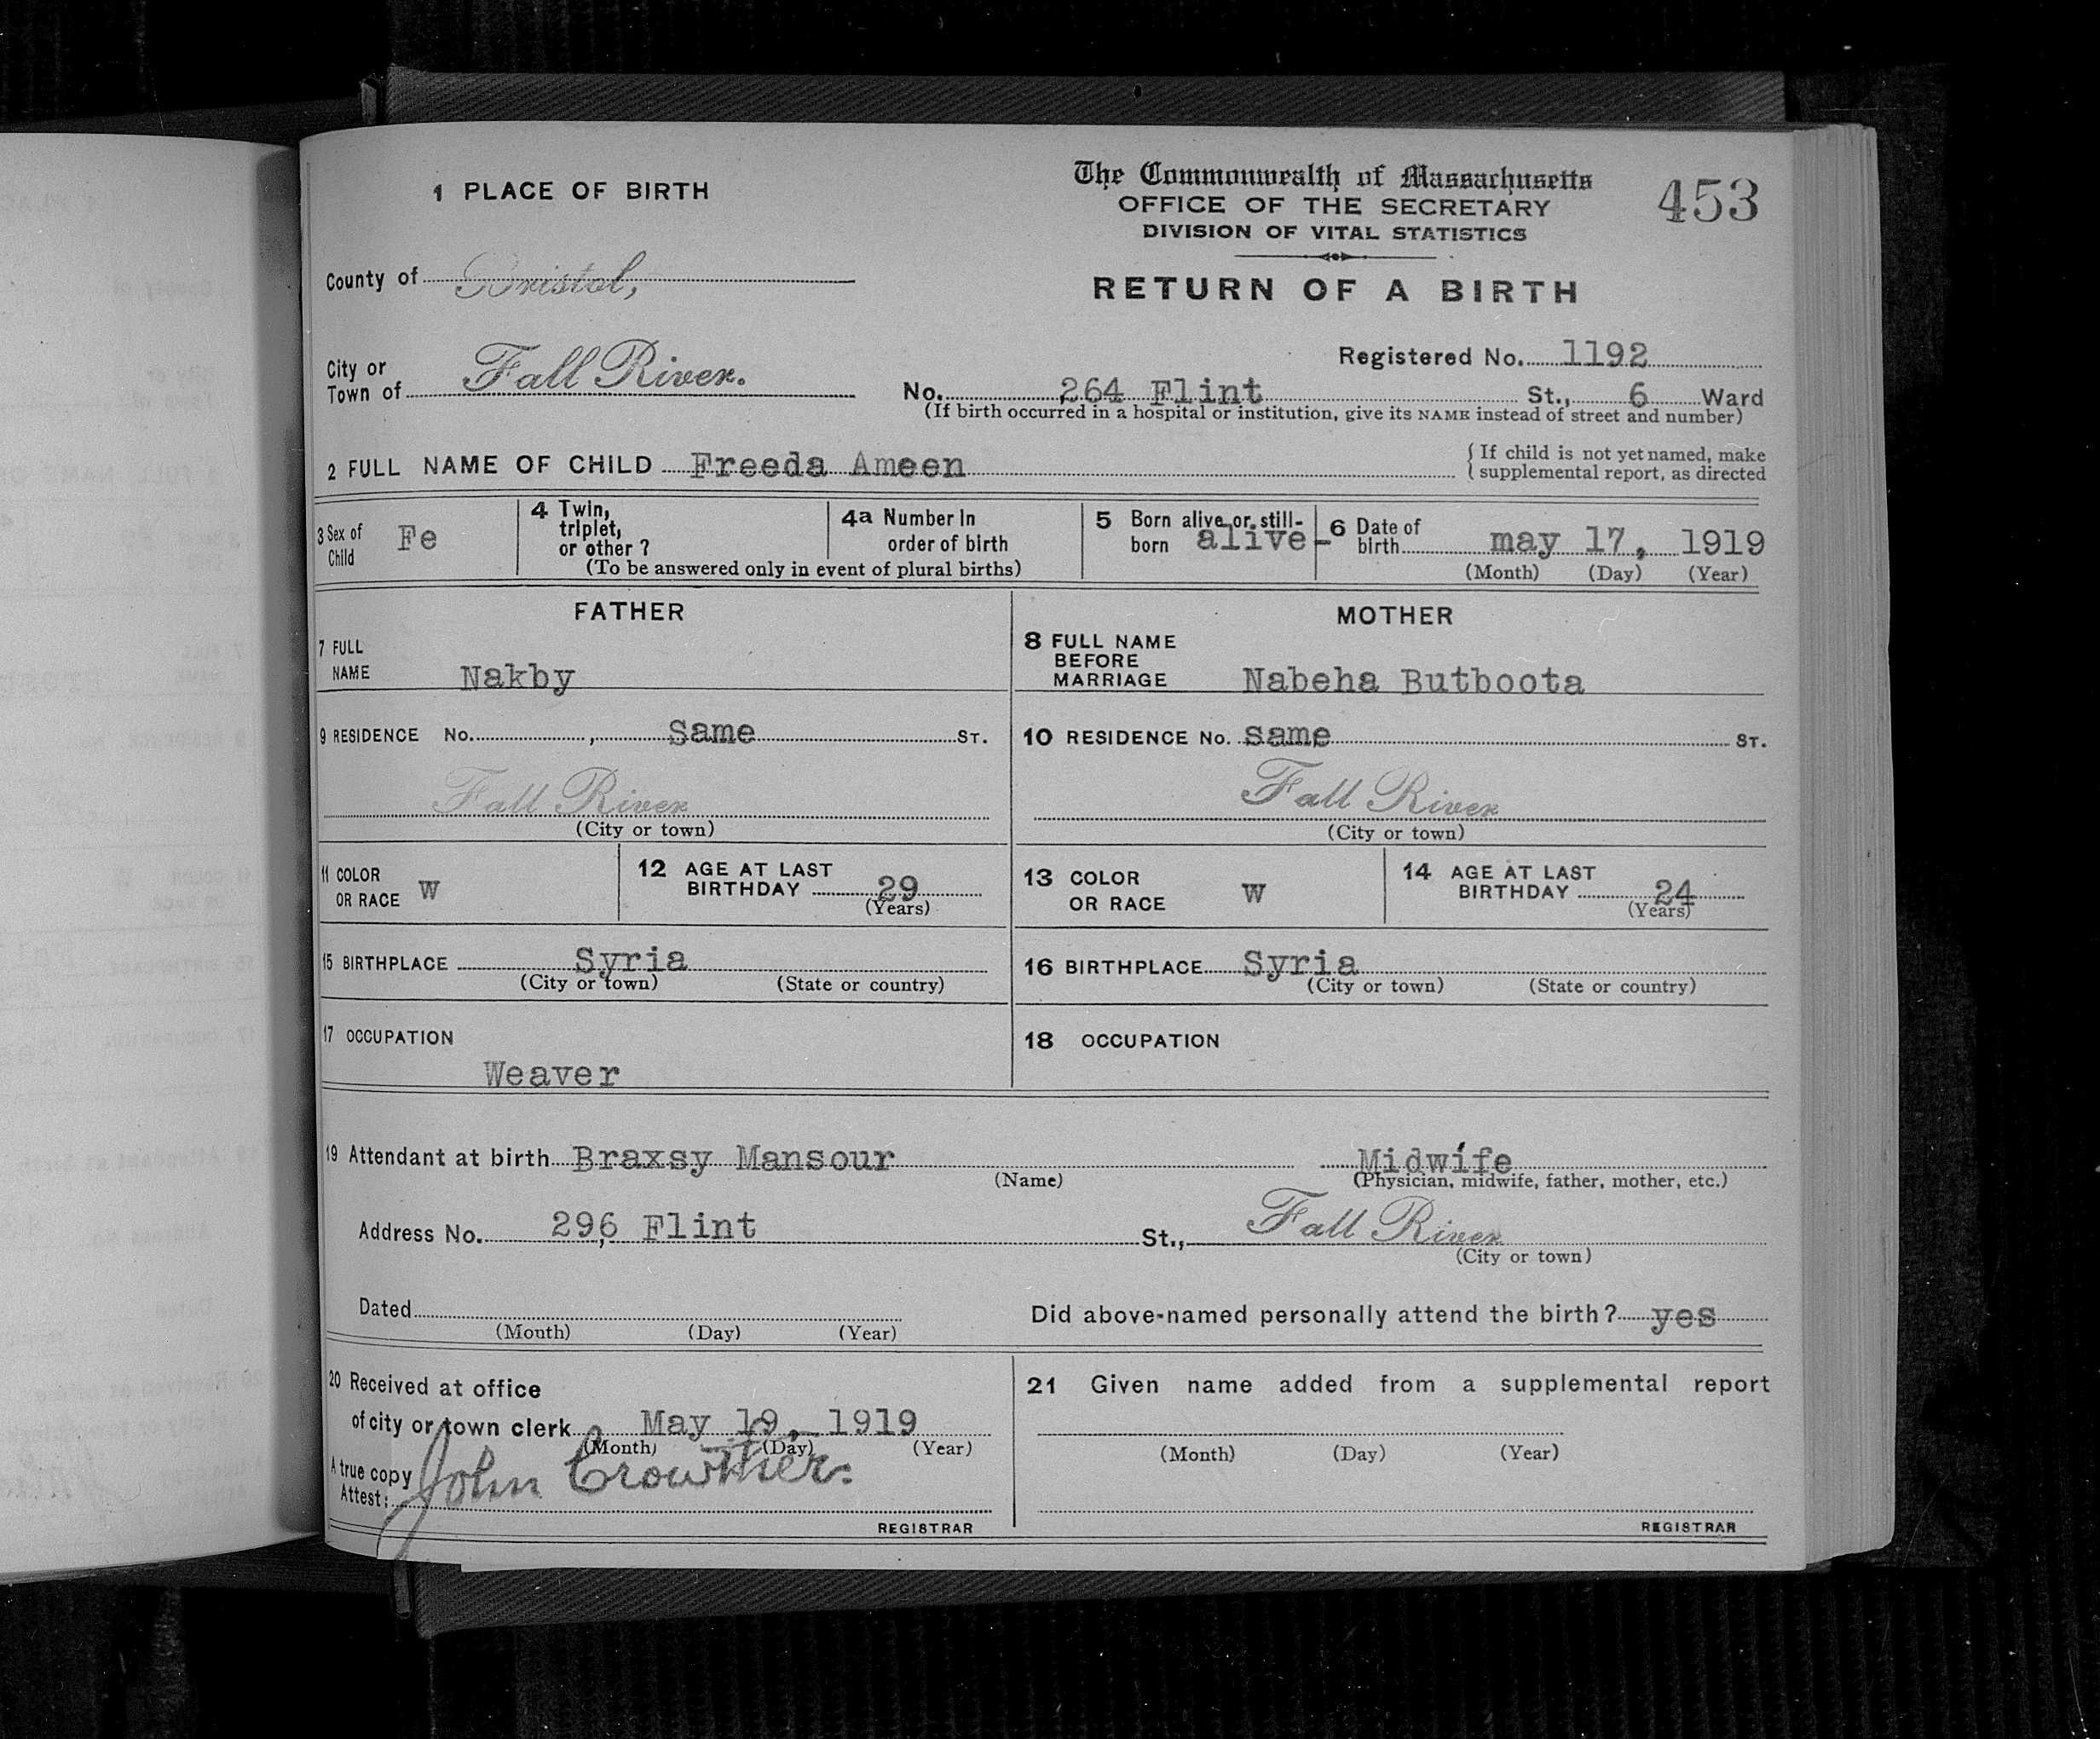 1 PLACE OF BIRTH
The Commonwealth of Massachusetts
OFFICE OF THE SECRETARY
DIVISION OF VITAL STATISTICS
453
RETURN OF A BIRTH
County of Bristol,
Registered No. 1192
City or
Town of Fall River.
No. 264 Flint St., 6 Ward
(If birth occurred in a hospital or institution, give its NAME instead of street and number)
2 FULL NAME OF CHILD Freeda Ameen
{ If child is not yet named, make
{ supplemental report, as directed
3 Sex of
Child Fe
4 Twin,
triplet,
or other ?
4a Number in
order of birth
(To be answered only in event of plural births)
5 Born alive or still-
born alive-
6 Date of
birth may 17, 1919
(Month) (Day) (Year)
FATHER
7 FULL
NAME Nakby
MOTHER
8 FULL NAME
BEFORE
MARRIAGE Nabeha Butboota
9 RESIDENCE No. , Same ST.
Fall River
(City or town)
10 RESIDENCE No. same ST.
Fall River
(City or town)
11 COLOR
OR RACE W
12 AGE AT LAST
BIRTHDAY 29
(Years)
13 COLOR
OR RACE W
14 AGE AT LAST
BIRTHDAY 24
(Years)
15 BIRTHPLACE Syria
(City or town) (State or country)
16 BIRTHPLACE Syria
(City or town) (State or country)
17 OCCUPATION
Weaver
18 OCCUPATION
19 Attendant at birth Braxsy Mansour Midwife
(Name) (Physician, midwife, father, mother, etc.)
Address No. 296, Flint St., Fall River
(City or town)
Dated
(Month) (Day) (Year)
Did above-named personally attend the birth? yes
20 Received at office
of city or town clerk May 19, 1919
(Month) (Day) (Year)
A true copy
Attest: John Crowther.
REGISTRAR
21 Given name added from a supplemental report
(Month) (Day) (Year)
REGISTRAR